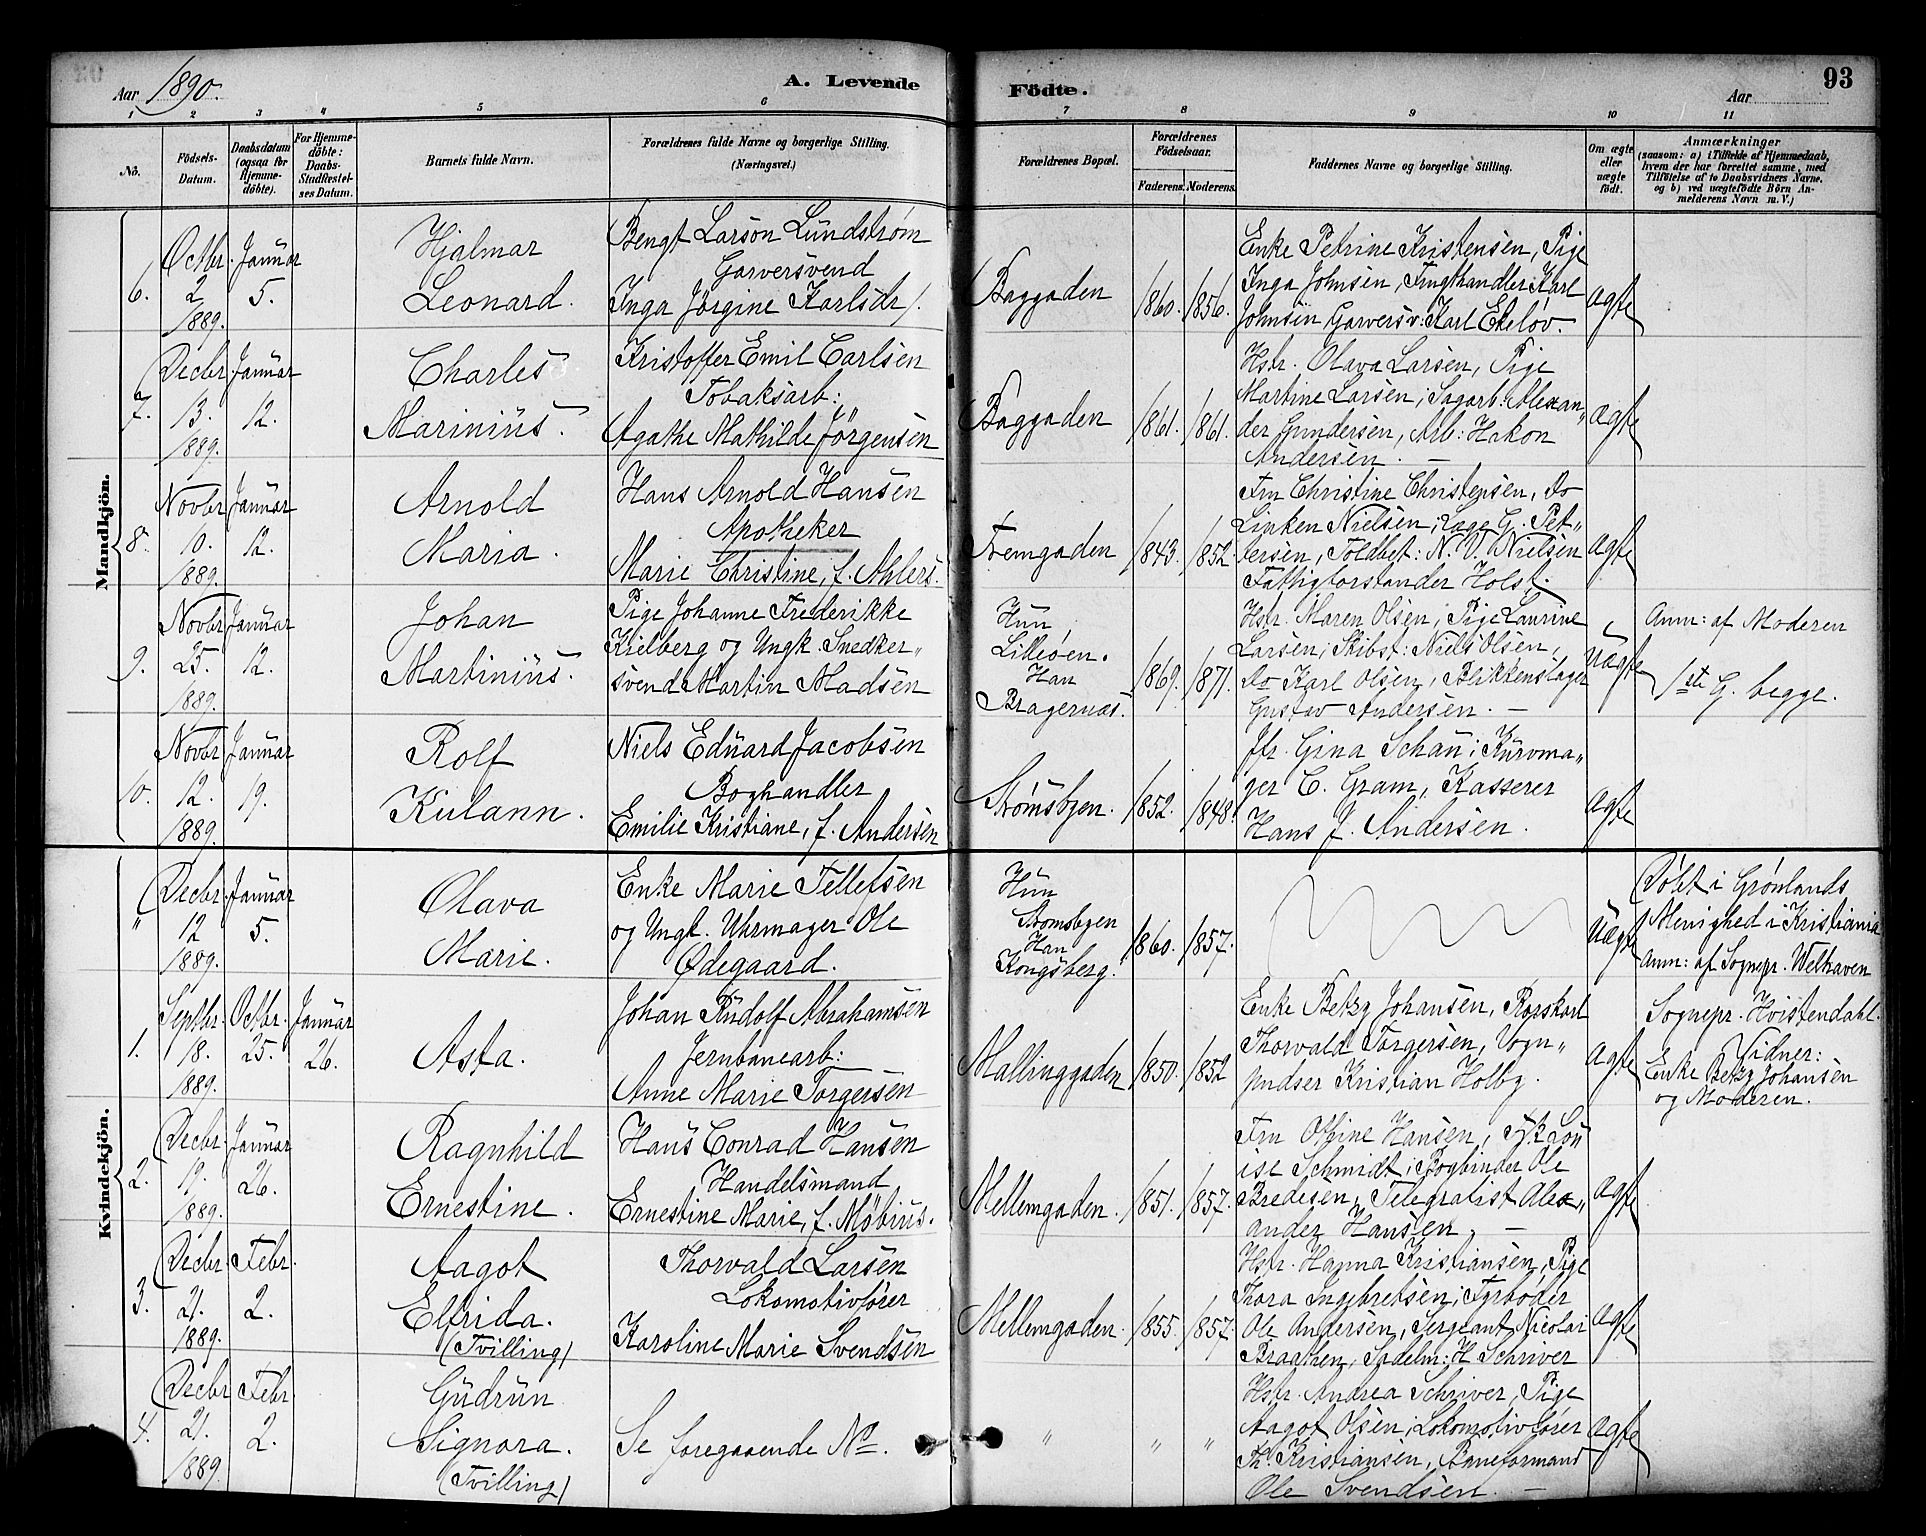 Aar 1890.
A. Levende
Födte.
93
Aar
1 2 3 4 5 6 7 8 9 10 11
No.
Födsels-Datum.
Daabsdatum (ogsaa for Hjemme-döbte).
For Hjemme-döbte: Daabs-Stadfæstel-ses Datum.
Barnets fulde Navn.
Forældrenes fulde Navne og borgerlige Stilling. (Næringsvei.)
Forældrenes Bopæl.
Forældrenes Födselsaar.
Faderens. Moderens.
Faddernes Navne og borgerlige Stilling.
Om ægte eller uægte födt.
Anmærkninger
(saasom: a) i Tilfælde af Hjemmedaab, hvem der har forrettet samme, med Tilföielse af to Daabsvidners Navne, og b) ved uægtefödte Börn An-melderens Navn m. V.)
Mandkjön.
6.
Octbr. 2 1889.
Januar 5.
Hjalmar
Leonard.
Bengt Larson Lundstrøm
Garversvend
Inga Jörgine Karlsdr.
Baggaden
1860. 1856.
Enke Petrine Kristensen, Pige
Inga Johnsen, Frugthandler Karl
Johnsen Garversv: Karl Ekeløv.
ægte
7.
Decbr. 13. 1889.
Januar 12.
Charles
Marinius.
Kristoffer Emil Carlsen
Tobaksarb:
Agathe Mathilde Jörgensen
Baggaden
1861. 1861.
Hstr. Olava Larsen, Pige
Martine Larsen; Sagarb: Alexan„
der Gundersen, Arb: Hakon
Andersen. —
ægte
8.
Novbr 10. 1889.
Januar 12.
Arnold
Maria.
Hans Arnold Hansen
Apotheker
Marie Christine, f. Ahlers.
Fremgaden
1843. 1852.
Fru Christine Christensen, Do
Linken Nielsen; Læge G. Pet„
tersen, Toldbet: N. V. Nielsen
Fattigforstander Holst.
ægte
9.
Novbr 25. 1889.
Januar 12.
Johan
Martinius.
Pige Johanne Frederikke
Kielberg og Ungk. Snedker„
svend Martin Madsen
Hun,
Lilleøen.
Han
Bragernæs.
1869. 1871.
Hstr. Maren Olsen, Pige Laurine
Larsen; Skibst: Niels Olsen,
Do Karl Olsen, Blikkenslager
Gustav Andersen. —
Uægte
Anm: af Moderen
1ste G. begge.
10.
Novbr 12. 1889.
Januar 19.
Rolf
Kulann.
Niels Eduard Jacobsen
Boghandler
Emilie Kristiane, f. Andersen
Strømsbyen.
1852. 1848.
Jfr. Gina Schau; Kurvma„
ger C. Gram, Kasserer
Hans J. Andersen.
ægte
Kvindekjön.
„
Decbr. 12 1889.
Januar 5.
Olava
Marie.
Enke Marie Tellefsen
og Ungk. Uhrmager Ole
Ødegaard.
Hun
Strømsbyen
Han
Kongsberg.
1860. 1857.
Uægte
Døbt i Grønlands
Menighed i Kristiania
Anm: af Sognepr. Welhaven
1.
Septbr. 18. 1889.
Octbr. 25.
Januar 26.
Asta.
Johan Rudolf Abrahamsen
Jernbanearb:
Anne Marie Torgersen
Mallinggaden
1850. 1852
Enke Betzy Johansen, Rorskarl
Thorvald Torgersen, Vogn„
pudser Kristian Holby.
ægte
Sognepr. Hvistendahl.
Vidner:
Enke Betzy Johansen
og Moderen.
2.
Decbr. 19. 1889.
Januar 26.
Ragnhild
Ernestine.
Hans Conrad Hansen
Handelsmand
Ernestine Marie, f. Møbius.
Mellemgaden.
1851. 1857.
Fru Othine Hansen, Frk Lou
ise Schmidt; Bogbinder Ole
Bredesen, Telegrafist Alex„
ander Hansen. —
ægte
3.
Decbr. 21. 1889.
Febr. 2.
Aagot
Elfrida.
(Tvilling)
Thorvald Larsen
Lokomotivfører
Karoline Marie Svendsen
Mellemgaden.
1855. 1857.
Hstr. Hanna Kristiansen, Pige
Thora Ingebretsen; Fyrbøder
Ole Andersen, Sergeant Nicolai
Braathen, Sadelm: H Schriver
ægte
4.
Decbr 21. 1889.
Febr 2.
Gudrun
Signora.
(Tvilling)
Se foregaaende No.
„ „ „
Hstr. Andrea Schriver, Pige
Aagot Olsen; Lokomotivfører
Th. Kristiansen, Baneformand
Ole Svendsen. —
ægte